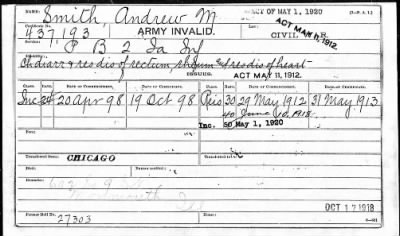 NAME: Smith, Andrew M ACT OF MAY 1, 1920
No. 437,193 ARMY INVALID. CIVIL WAR. ACT MAY 11, 1912.
Service: P B 2 Ia Inf
Ch diarr & res dis of rectum, rheum & res dis of heart
ISSUES. ACT MAY 11, 1912.
CLASS. RATE. DATE OF COMMENCEMENT. DATE OF CERTIFICATE. CLASS. RATE. DATE OF COMMENCEMENT. DATE OF CERTIFICATE.
Inc 24 20 Apr 98 19 Oct 98 Reis 30 29 May 1912 31 May 1913
40 June 10, 1918
Inc. 50 May 1, 1920
Transferred from CHICAGO
Monmouth Ill
Former Roll No. 27303
OCT 17 1918